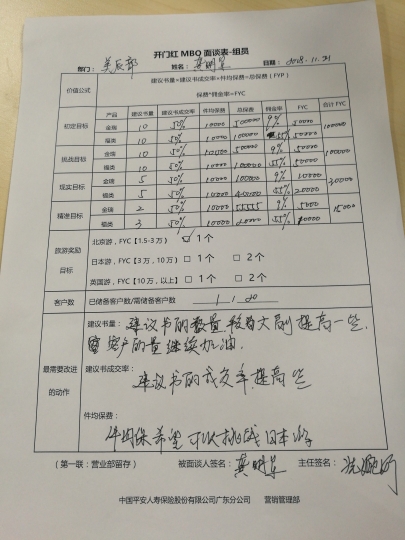 开门红 MBO 面谈表-组员
部门: 美辰部 姓名: 龚明星 日期: 2018.11.21
价值公式 建议书量×建议书成交率×件均保费=总保费(FYP)
保费*佣金率=FYC
产品 建议书量 建议书成交率 件均保费 总保费 佣金率 FYC 合计 FYC
初定目标 金瑞 10 50% 10000 500000 9% 50000 100000
福类 10 50% 10000 55% 50000
挑战目标 金瑞 10 50% 9% 50000 100000
福类 10 50% 10000 55% 50000
现实目标 金瑞 5 50% 10000 9% 10000 30000
福类 5 50% 55% 20000
精准目标 金瑞 2 50% 10000 55555 9% 5000 15000
福类 3 50% 10000 55% 10000
旅游奖励目标 北京游,FYC【1.5-3万】 ☑ 1个
日本游,FYC【3万,10万】 □ 1个 □ 2个
英国游,FYC【10万,以上】 □ 1个 □ 2个
客户数 已储备客户数/需储备客户数
最需要改进的动作
建议书量: 建议书的数量 大副提高一些.
客户的量继续加油.
建议书成交率:
建议书的成交率提高些
件均保费:
件均保希望可以挑战日本游
(第一联:营业部留存) 被面谈人签名: 龚明星 主任签名:
中国平安人寿保险股份有限公司广东分公司 营销管理部